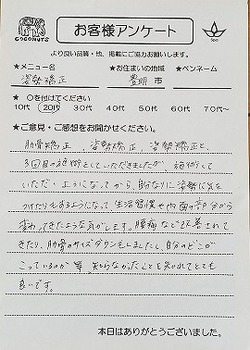 COCONUTS
お客様アンケート
より良い品質・地、掲載にご協力お願いします。
★メニュー名 ★お住まいの地域 ★ペンネーム
姿勢矯正 豊明 市
★ ○を付けてください
10代 20代 30代 40代 50代 60代 70代～
★ご意見・ご感想をお聞かせください。
肋骨矯正、姿勢矯正、姿勢矯正と、
3回目の施術としていただきましたが 施術して
いただくようになってから、自分なりに姿勢に気を
つけたりもするようになって生活習慣や内面の部分から
変わってきたような気がします。腰痛など改善されて
きたり、肋骨のサイズダウンもしましたし、自分のどこが
こっているのか等 知らなかったことを知れてとても
良いです。
本日はありがとうございました。